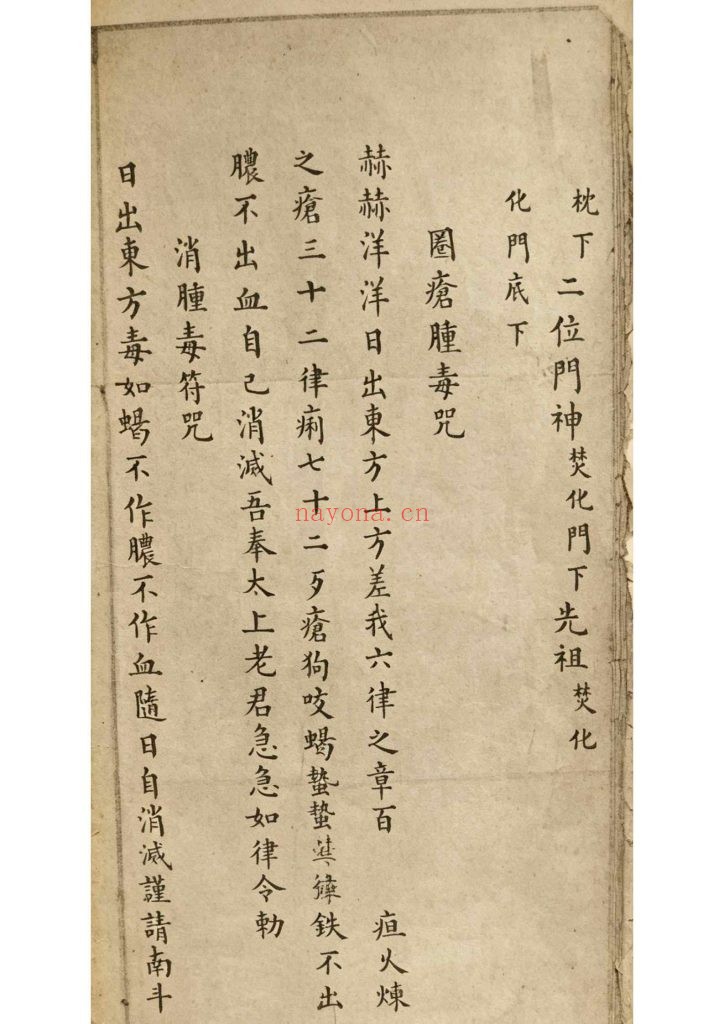 枕下二位門神焚化門下先祖焚化
化門底下
圈瘡腫毒咒
赫赫洋洋日出東方上方差我六律之章百 疸火煉
之瘡三十二律痢七十二歹瘡狗咬蝎蟄蟄鉄不出
膿不出血自己消滅吾奉太上老君急急如律令勅
消腫毒符咒
日出東方毒如蝎不作膿不作血隨日自消滅謹請南斗
nayona.cn